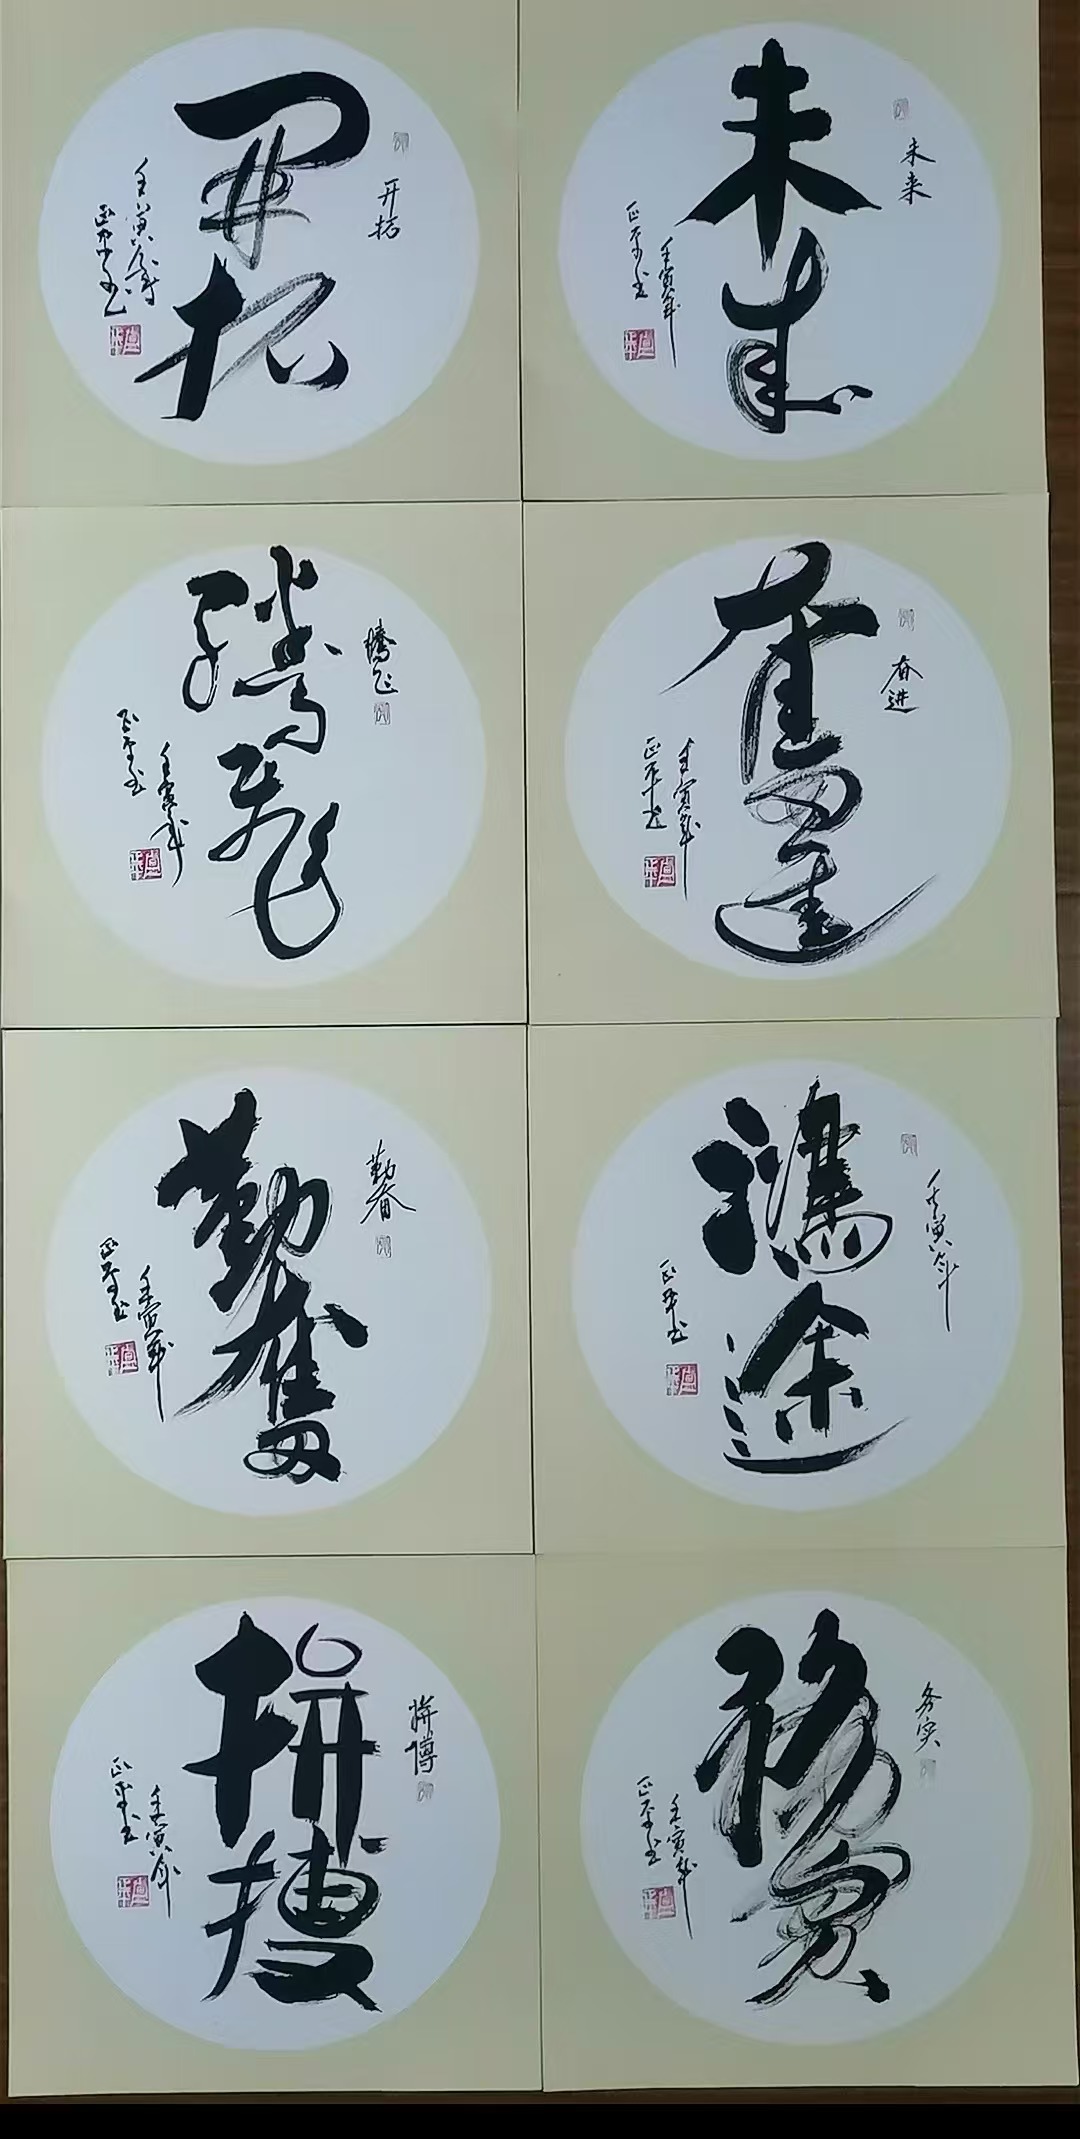 开拓
开拓
壬寅年
正平书
未来
未来
壬寅年
正平书
腾飞
騰飛
壬寅年
正平书
奋进
奮進
壬寅年
正平书
勤奋
勤奮
壬寅年
正平书
鴻途
壬寅年
正平书
拼博
拼搏
壬寅年
正平书
务实
務實
壬寅年
正平书